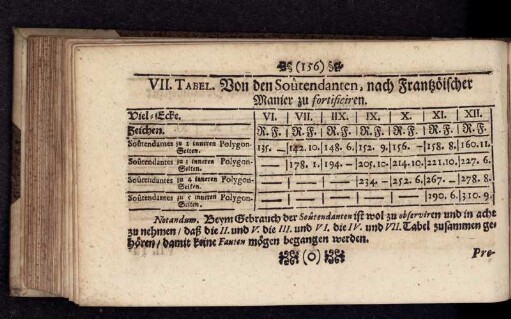 (156)
VII. TABEL. Von den Soûtendanten, nach Frantzöischer
Manier zu fortificiren.
Viel-Ecke. VI. VII. IIX. IX. X. XI. XII.
Zeichen. R. F. R. F. R. F. R. F. R. F. R. F. R. F.
Soûtendantes zu 2 inneren Polygon-Seiten. 135. — 142. 10. 148. 6. 152. 9. 156. — 158. 8. 160. 11.
Soûtendantes zu 3 inneren Polygon-Seiten. — — 178. 1. 194. — 205. 10. 214. 10. 221. 10. 227. 6.
Soûtendantes zu 4 inneren Polygon-Seiten. — — — — — — 234. — 252. 6. 267. — 278. 8.
Soûtendantes zu 5 inneren Polygon-Seiten. — — — — — — — — — — 290. 6. 310. 9.
Notandum. Beym Gebrauch der Soûtendanten ist wol zu observiren und in acht
zu nehmen / daß die II. und V. die III. und VI. die IV. und VII. Tabel zusammen ge-
hören / damit keine Fauten mögen begangen werden.
(O)
Pre-